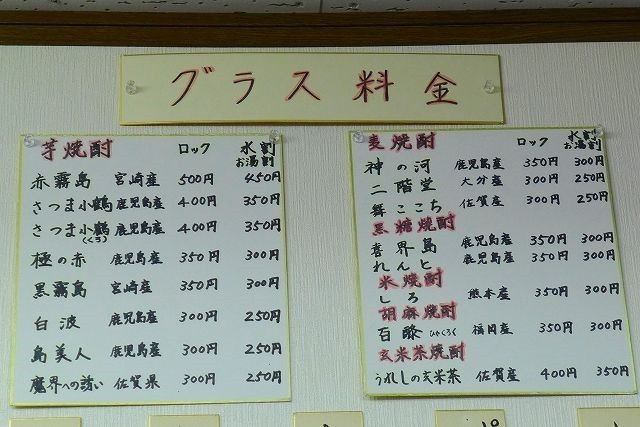 グラス料金
芋焼酎 ロック 水割 お湯割
赤霧島 宮崎産 500円 450円
さつま小鶴 鹿児島産 400円 350円
さつま小鶴(くろ) 鹿児島産 400円 350円
極の赤 鹿児島産 350円 300円
黒霧島 宮崎産 350円 300円
白波 鹿児島産 300円 250円
島美人 鹿児島産 300円 250円
魔界への誘い 佐賀県 300円 250円
麦焼酎 ロック 水割 お湯割
神の河 鹿児島産 350円 300円
二階堂 大分産 300円 250円
舞ここち 佐賀産 300円 250円
黒糖焼酎
喜界島 鹿児島産 350円 300円
れんと 鹿児島産 350円 300円
米焼酎
しろ 熊本産 350円 300円
胡麻焼酎
百酴 ひゃくろく 福岡産 350円 300円
玄米茶焼酎
うれしの玄米茶 佐賀産 400円 350円